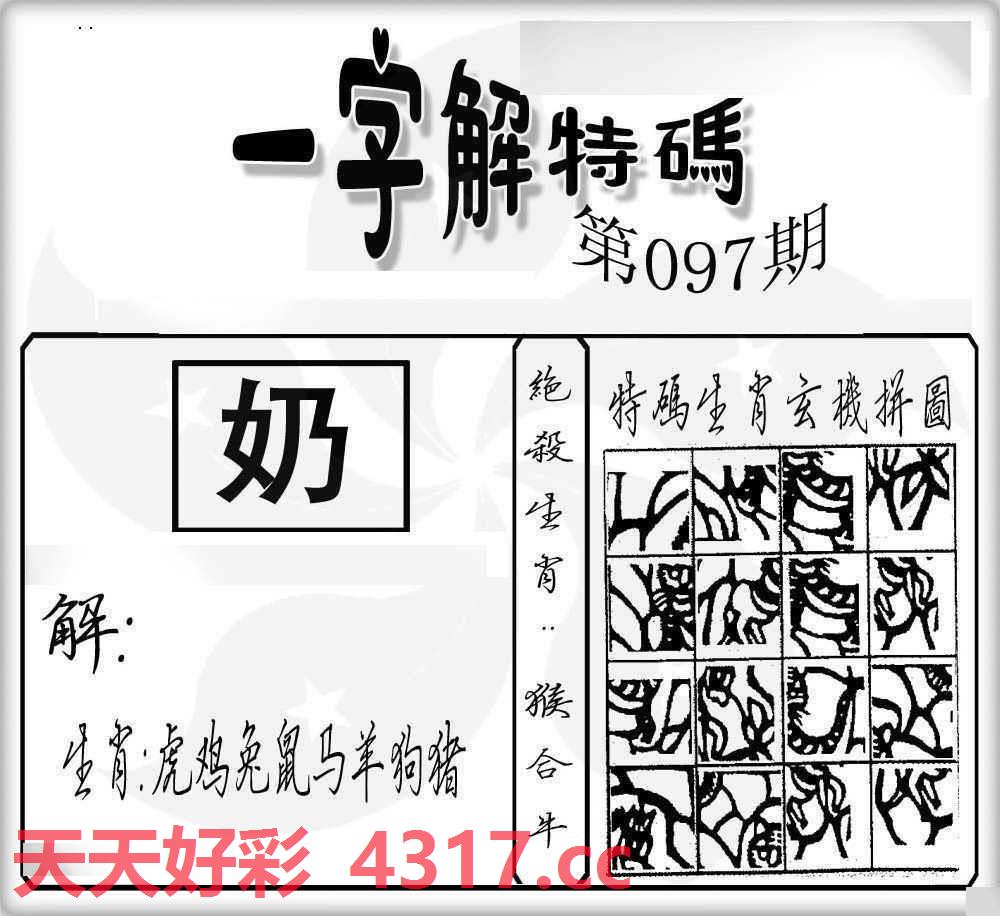 一字解特碼
第097期
奶
解：
生肖：虎鸡兔鼠马羊狗猪
絶殺生肖：猴合牛
特碼生肖玄機拼圖
天天好彩 4317.cc